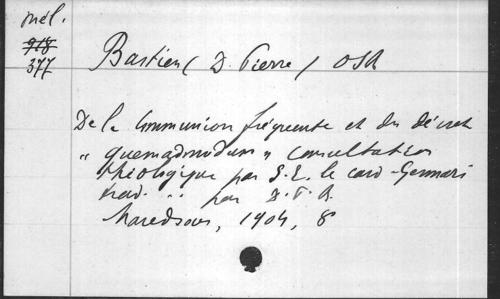 mél.
918
377
Bastien ( D. Pierre ) OSB
De la Communion fréquente et du décret
" quemadmodum " consultation
théologique par S.E. le card. Gennari
trad. .. par D.P.B.
Maredsous, 1904, 8°